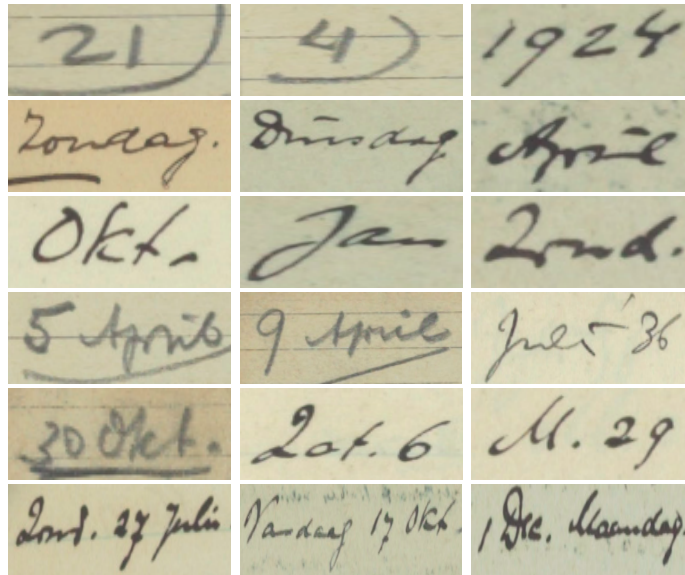 21 4) 1924
Zondag. Dinsdag April
Okt. Jan Zond.
5 April 9 April Juli 36
30 Okt. Zat. 6 M. 29
Zond. 27 Juli Vandaag 17 Okt. 1 Dec. Maandag.